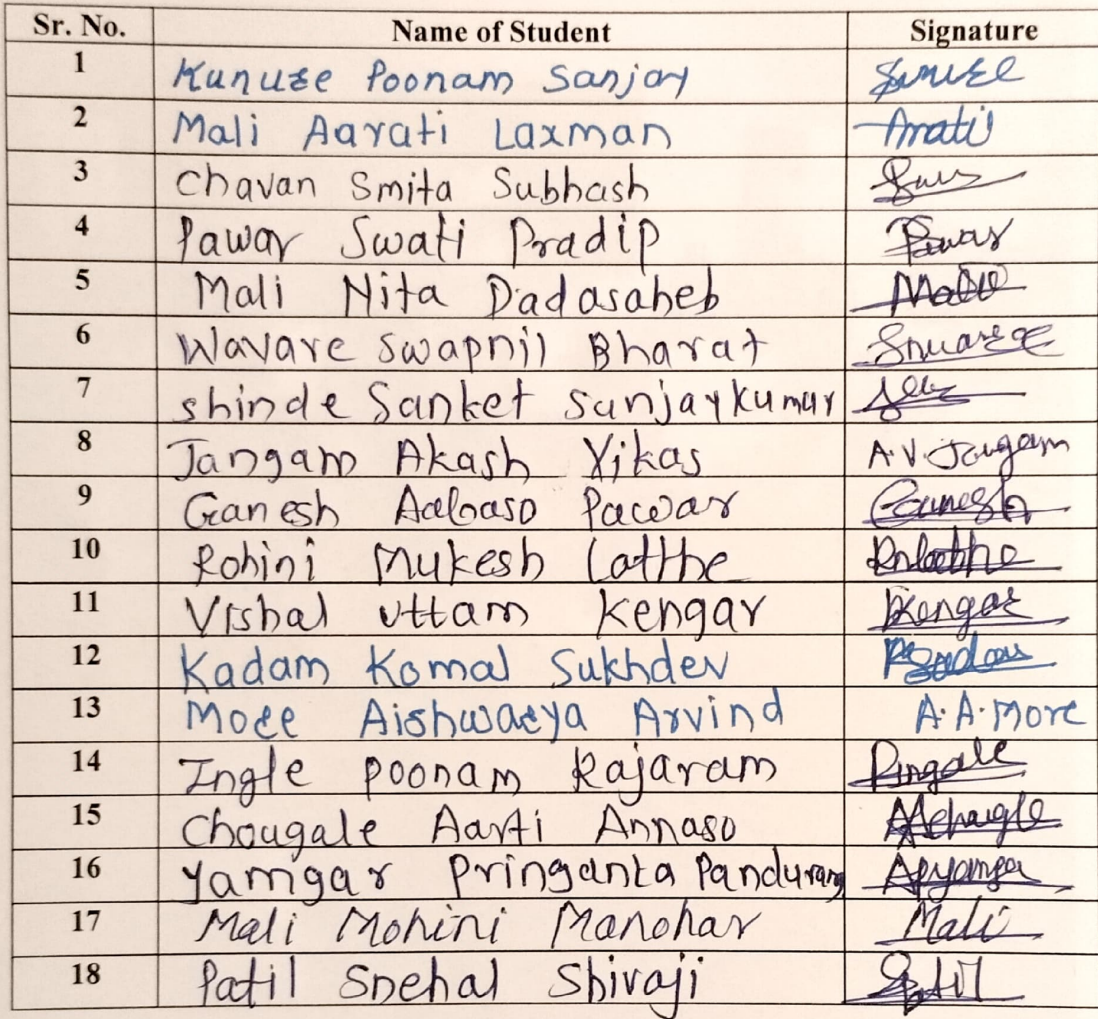 Sr. No. Name of Student Signature
1 Kunuze Poonam Sanjay
2 Mali Aarati Laxman Arati
3 Chavan Smita Subhash
4 Pawar Swati Pradip Pawar
5 Mali Nita Dadasaheb Mali
6 Wavare Swapnil Bharat
7 shinde Sanket Sanjaykumar
8 Jangam Akash Vikas A.V. Jangam
9 Ganesh Aabaso Pawar Ganesh
10 Rohini Mukesh Latthe
11 Vishal Uttam Kengar Kengar
12 Kadam Komal Sukhdev
13 More Aishwarya Arvind A.A.More
14 Ingle poonam Rajaram
15 Chougale Aarti Annaso
16 Yamgar Pringanka Pandurang
17 Mali Mohini Manohar Mali
18 Patil Snehal Shivaji